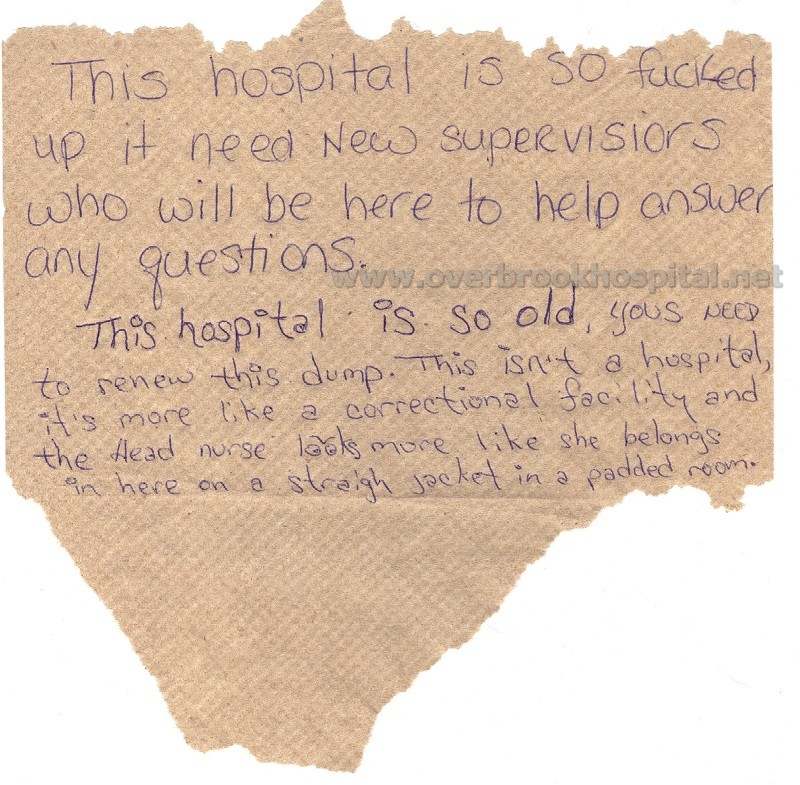 This hospital is so fucked
up it need New supervisiors
who will be here to help answer
any questions.
www.overbrookhospital.net
This hospital is so old, yous NEED
to renew this dump. This isn't a hospital,
it's more like a correctional facility and
the Head nurse looks more like she belongs
in here on a straigh jacket in a padded room.